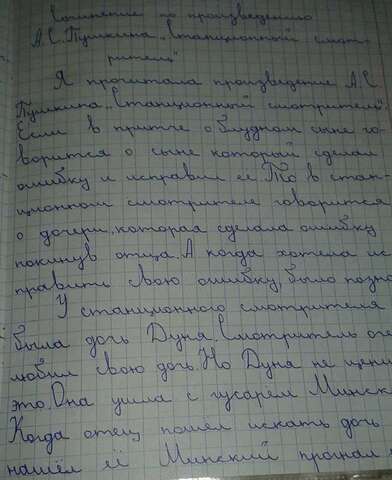 Сочинение по произведению
А.С. Пушкина „Станционный смот-
ритель"
Я прочитала произведение А.С
Пушкина „Станционный смотритель".
Если в притче о блудном сыне го-
ворится о сыне который сделал
ошибку и исправил её. То в стан-
ционном смотрителе говорится
о дочери, которая сделала ошибку
покинув отца. А когда хотела ис
править свою ошибку, было поздно
У станционного смотрителя
была дочь Дуня. Смотритель оче
любил свою дочь. Но Дуня не цени
это. Она ушла с гусарем Минск
Когда отец пошел искать дочь
нашёл её Минский прогнал